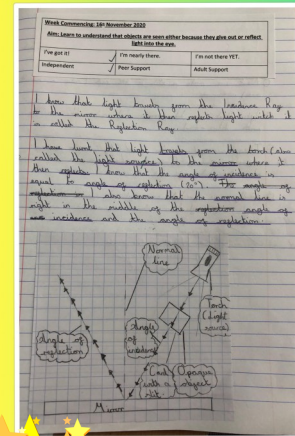 Week Commencing: 16th November 2020
Aim: Learn to understand that objects are seen either because they give out or reflect
light into the eye.
I've got it! I'm nearly there. I'm not there YET.
Independent Peer Support Adult Support
I know that light travels from the Incidence Ray
to the mirror where it then reflects light until it
is called the Reflection Ray.
I have learnt that light travels from the torch (also
called the light source) to the mirror where it
then reflects. I know that the angle of incidence is
equal to angle of reflection (70°). The angle of
reflection is I also know that the normal line is
right in the middle of the reflection angle of
incidence and the angle of reflection.
Normal
line
Torch
(Light
source)
Angle
of
incidence
Angle of
reflection
Card
with a
slit
Opaque
object
Mirror